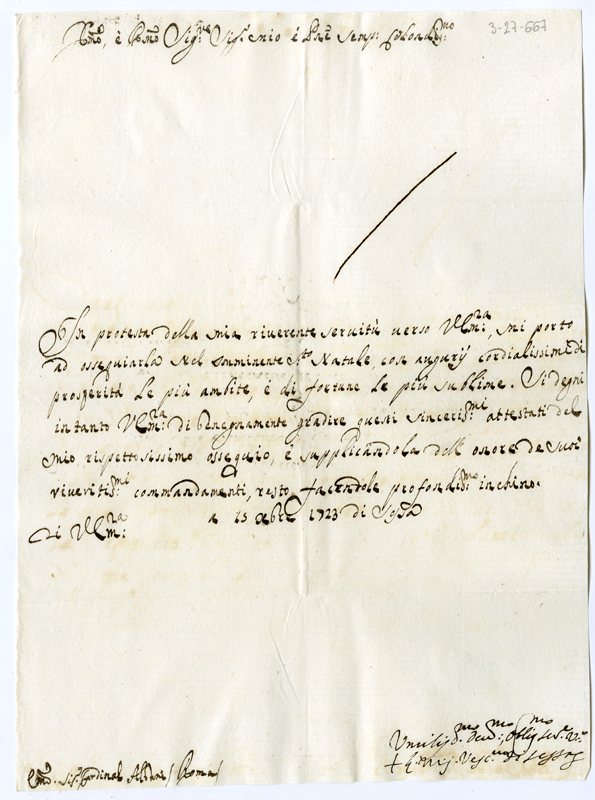 3-27-667
Emo, è Rmo Sigre Sigr mio è Pne Semp: Colendmo
In protesta della mia riverente servitù verso VEm:za, mi porto
ad ossequiarla nel Imminente Sto Natale, con augurÿ cordialissimi di
prosperità le più ambite, è di fortune le più sublime. Si degni
intanto VEm:za di benegnamente gradire questi sinceris:mi attestati del
mio rispettosissimo ossequio, è supplicandola dell onore de suoi
riveritis:mi commandamenti, resto facendole profondis:mo inchino.
Di VEm:za a 15 Xbre 1723 di
Umiliss:mo Devo:mo Oblig:mo
Vesc: di
Emo. Sigr Cardinal (Roma)